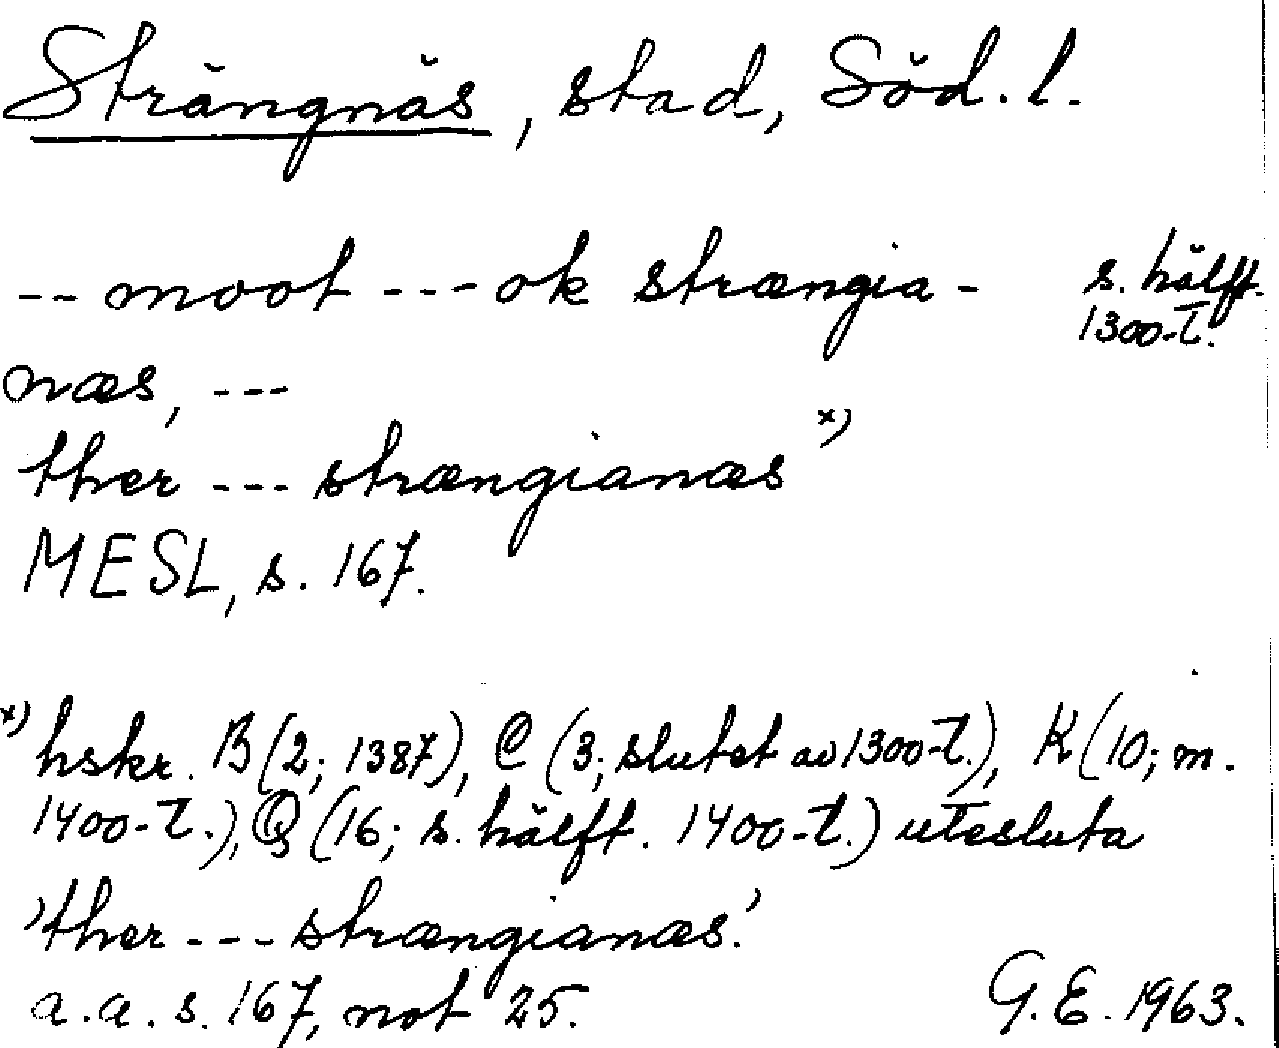 Strängnäs, stad, Söd. l.
-- moot --- ok strængia- s. hälft.
1300-t.
næs, ---
ther --- strængianæs x)
MESL, s. 167.
x) hskr. B (2; 1387), C (3; slutet av 1300-t.), K (10; m.
1400-t.), Q (16; s. hälft. 1400-t.) utesluta
'ther --- strængianæs.'
a.a. s. 167, not 25. G.E. 1963.